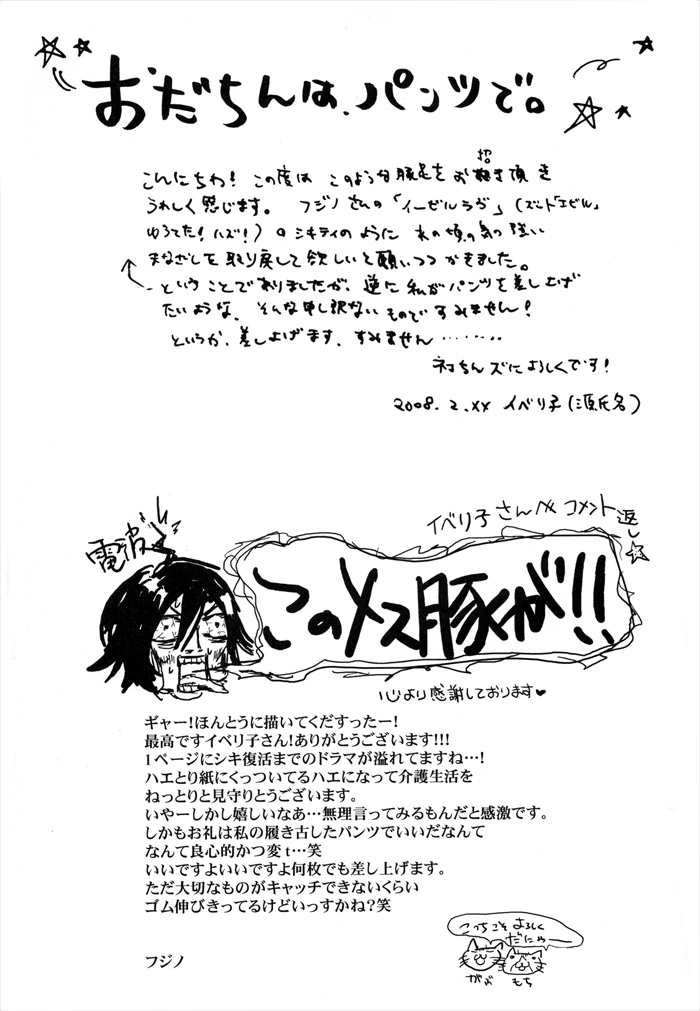 おだちんは、パンツで。
こんにちわ! この度は このような豚足をお招き頂き
うれしく感じます。 フジノさんの「イーゼルラヴ」(ズードエゼル」
ゆうてた!ハズ!) シキティのように あの頃の気の強い
まなざしを取り戻して欲しいと願いつつかきました。
ということでありましたが、逆に私がパンツを差し上げ
たいような、そんな申し訳ないものですみません!
というか、差し上げます、すみません………
ネコちんズによろしくです!
2008.2.xx イベリ子(源氏名)
イベリ子さんへ コメント返し
電波
このメス豚が!!
心より感謝しております♥
ギャー!ほんとうに描いてくだすったー!
最高ですイベリ子さん!ありがとうございます!!!
1ページにシキ復活までのドラマが溢れてますね…!
ハエとり紙にくっついてるハエになって介護生活を
ねっとりと見守りとうございます。
いやーしかし嬉しいなあ…無理言ってみるもんだと感激です。
しかもお礼は私の履き古したパンツでいいだなんて
なんて良心的かつ変t…笑
いいですよいいですよ何枚でも差し上げます。
ただ大切なものがキャッチできないくらい
ゴム伸びきってるけどいっすかね?笑
フジノ
こっちこそ よろしく
だにゃー
がぶ もち